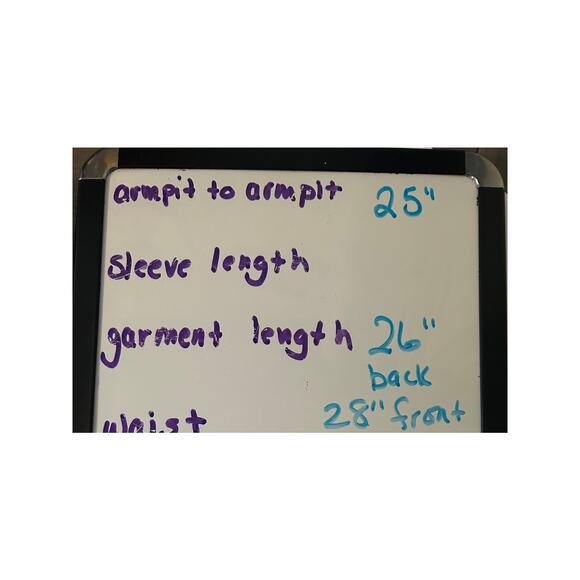 armpit to armpit 25"
sleeve length
garment length 26"
back
waist 28" front